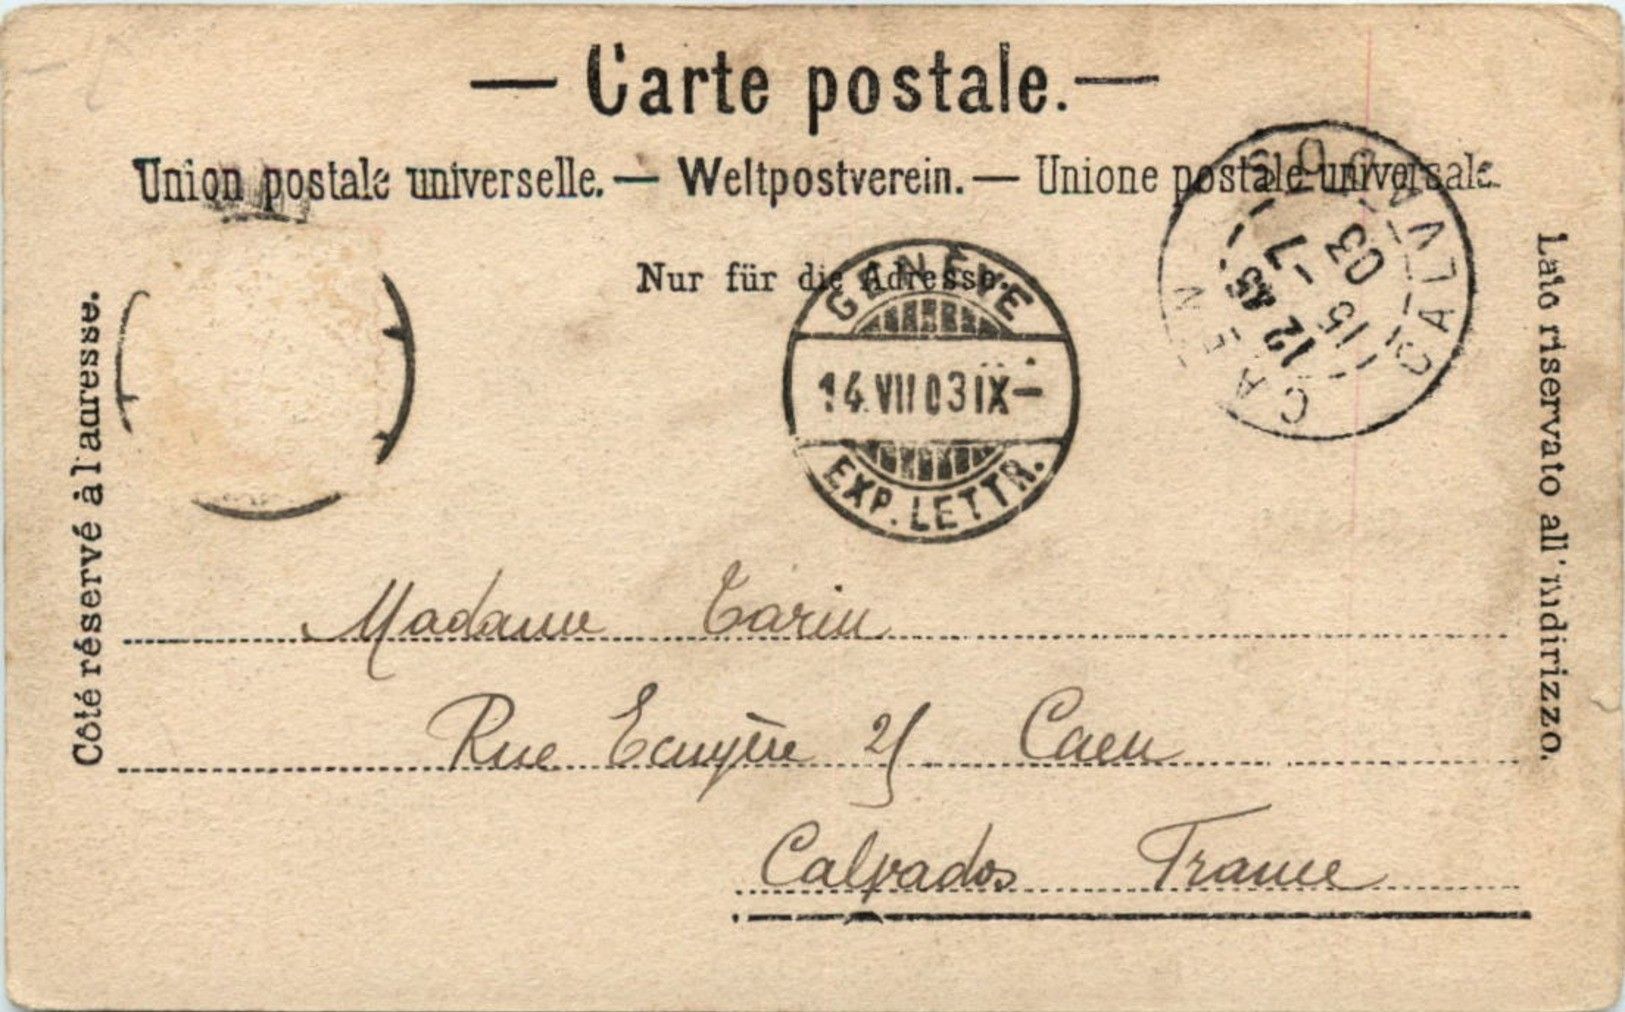 — Carte postale. —
Union postale universelle. — Weltpostverein. — Unione postale universale.
Nur für die Adresse.
Côté réservé à l'adresse.
Lato riservato all'indirizzo.
GENÈVE
14.VII.03.IX—
EXP. LETTR.
CAEN CALVADOS
12 45
15 – 7
03
Madame Tarin
Rue Ecuyère 25 Caen
Calvados France